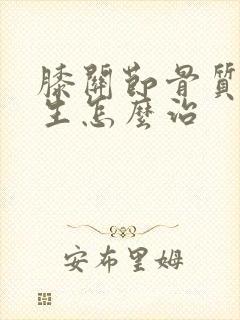 膝關節骨質
生怎麼治
安布里姆